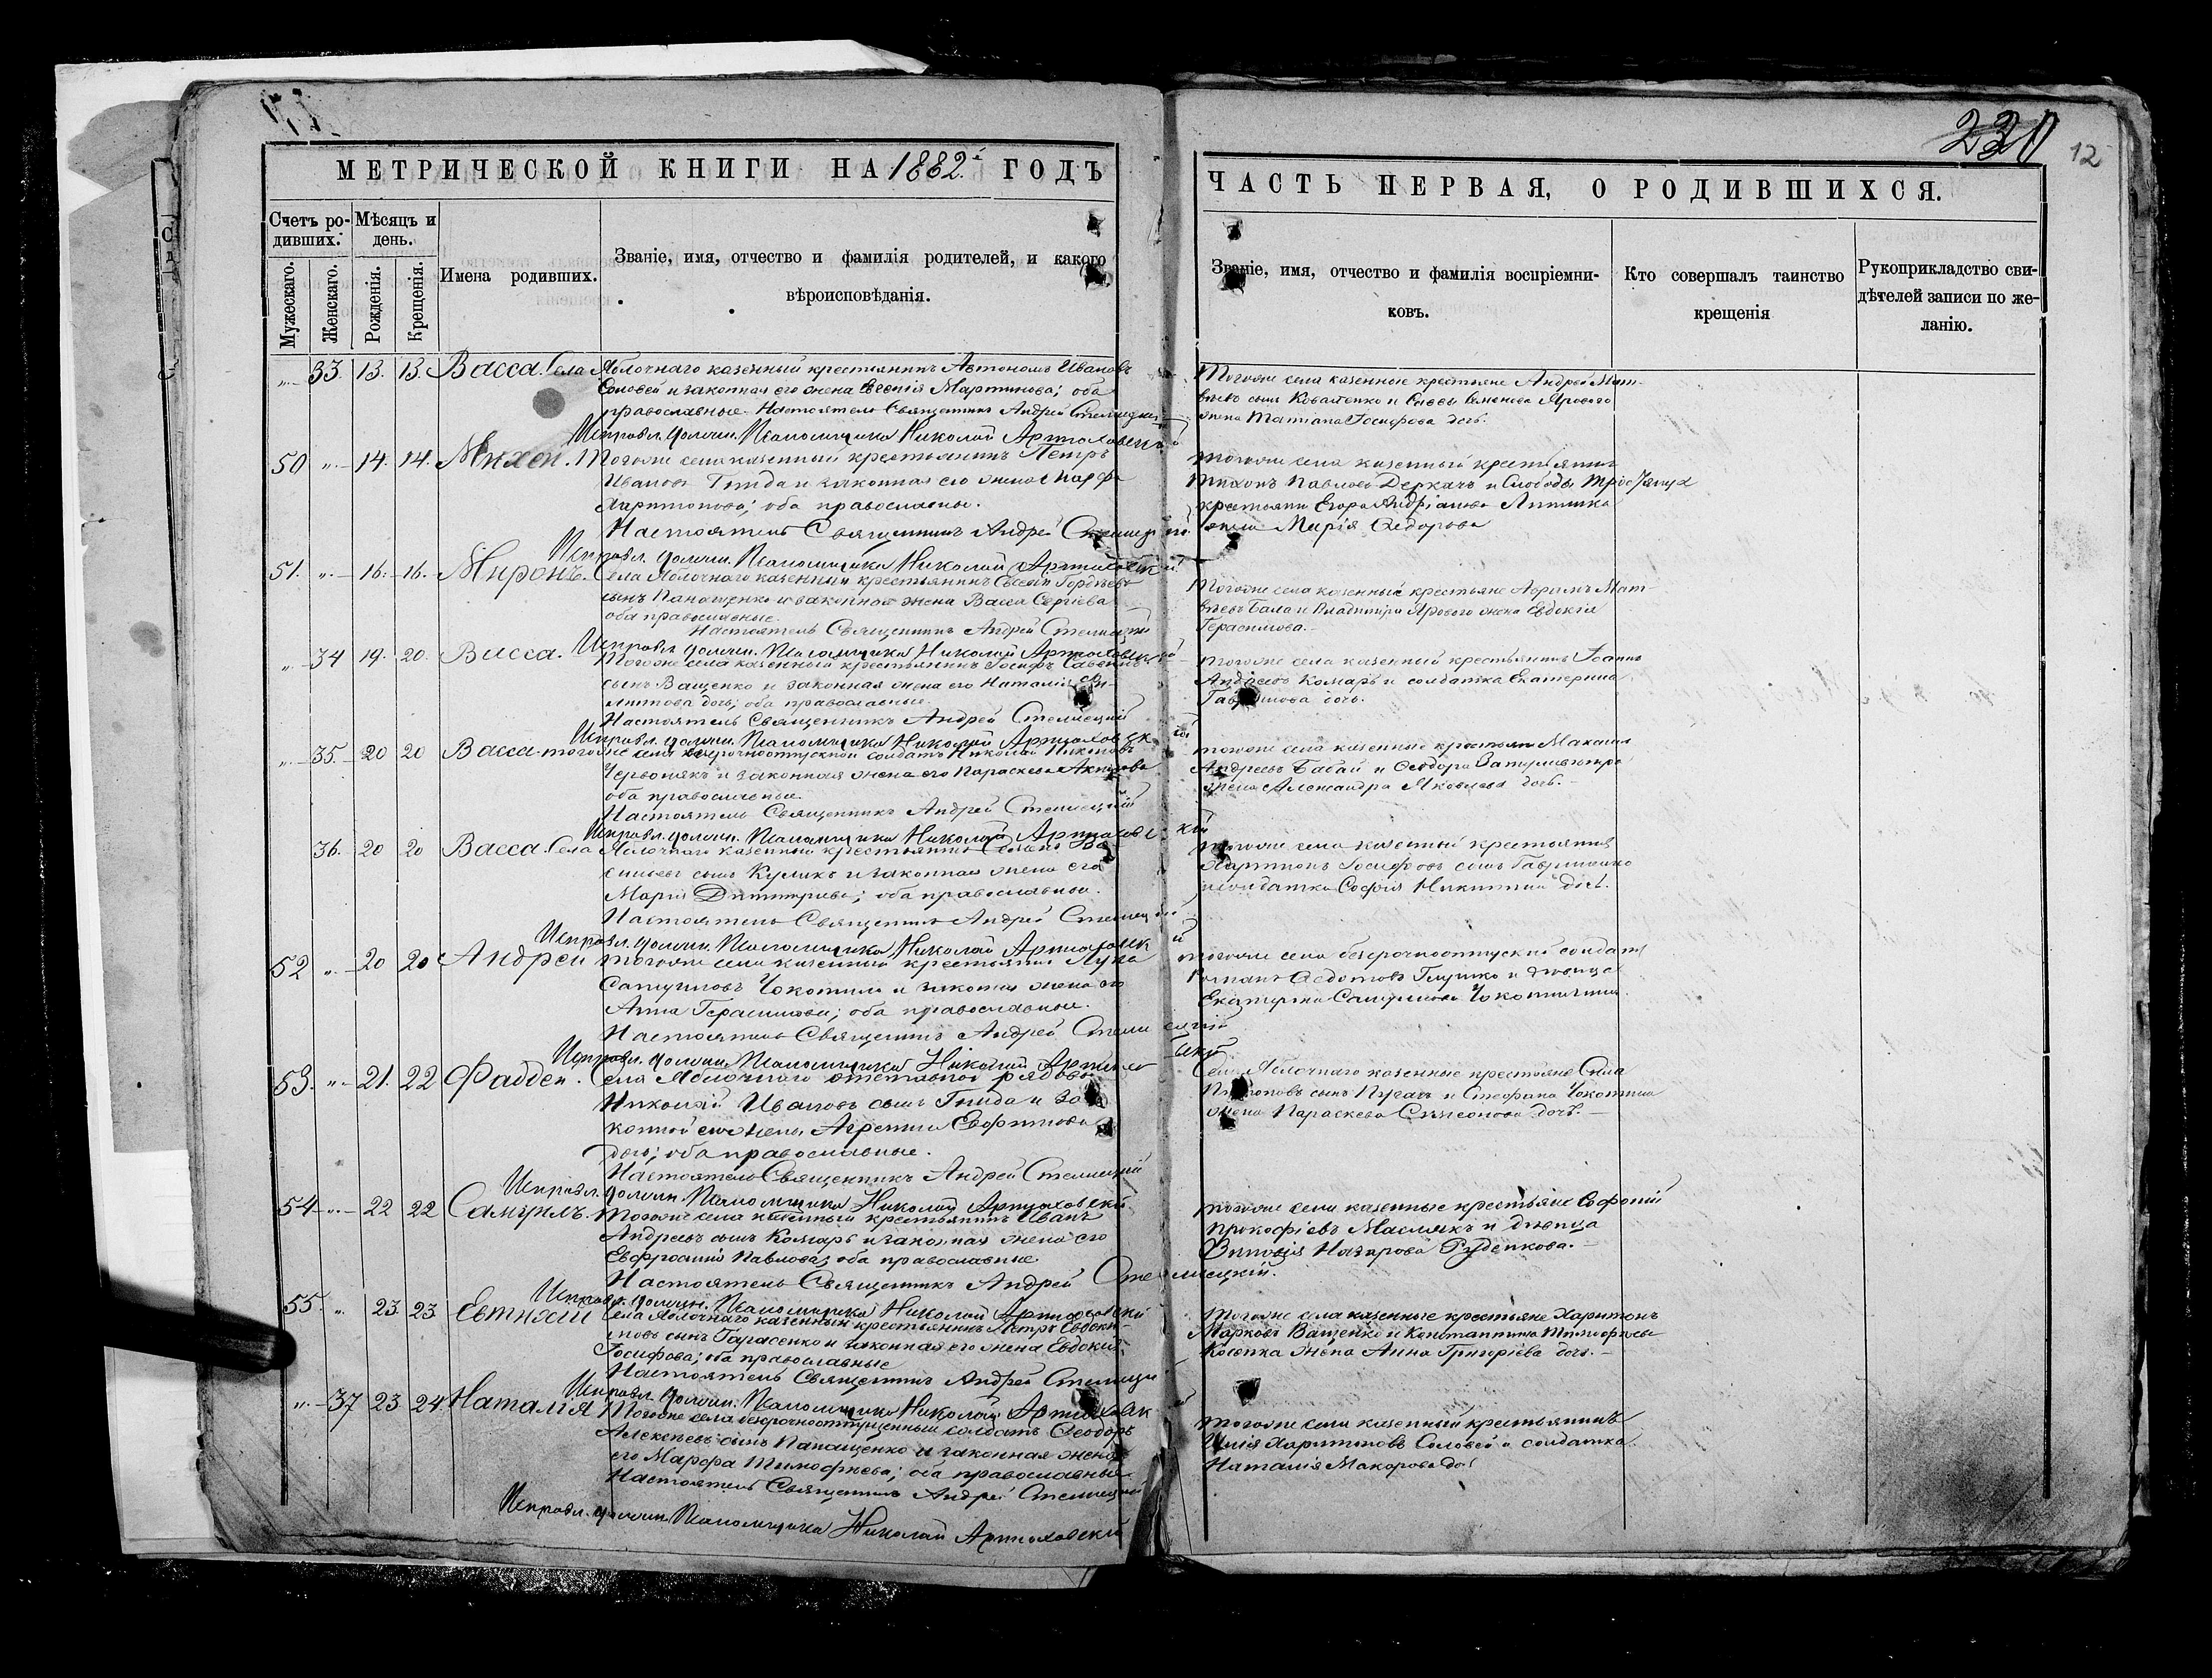 МЕТРИЧЕСКОЙ КНИГИ НА 1882й ГОДЪ
Счетъ ро-
дившихъ.
Мѣсяцъ и
день.
Мужескаго.
Женскаго.
Рожденія.
Крещенія.
Имена родивших.
Званіе, имя, отчество и фамилія родителей, и какого
вѣроисповѣданія.
„ 33. 13. 13. Васса. Села Яблочнаго казенный крестьянинъ Автономъ Ивановъ
Соловей и законная его жена Евгенія Мартинова; оба
православные. Настоятель Священникъ Андрей Стеллецкій
Исправл. должн. Псаломщика Николай Артюховскій
50 „ 14. 14. Михей. Тогоже села казенный крестьянинъ Петръ
Ивановъ Гнида и законная его жена Марфа
Харитонова; оба православные.
Настоятель Священникъ Андрей Стеллецкій
Исправл. должн. Псаломщика Николай Артюховскій
51. „ 16. 16. Миронъ. Села Яблочнаго казенный крестьянинъ Евсей Гордѣевъ
сынъ Панащенко и законная жена Васса Сергіева
оба православные.
Настоятель Священникъ Андрей Стеллецкій
Исправл. должн. Псаломщика Николай Артюховскій
„ 34 19. 20. Васса. Тогоже села казенный крестьянинъ Іосифъ Савельевъ
сынъ Ващенко и законная жена его Наталія Фи-
липпова дочь; оба православные.
Настоятель Священникъ Андрей Стеллецкій
Исправл. должн. Псаломщика Николай Артюховскій
„ 35. 20 20 Васса. тогоже села безсрочноотпускной солдатъ Николай Никитовъ
Червонякъ и законная жена его Параскева
оба православные.
Настоятель Священникъ Андрей Стеллецкій
Исправл. должн. Псаломщика Николай Артюховскій
36. 20 20 Васса. Села Яблочнаго казенный крестьянинъ Семенъ Ва-
сильевъ сынъ Куликъ и законная жена его
Марія Димитріева; оба православные.
Настоятель Священникъ Андрей Стеллецкій
Исправл. должн. Псаломщика Николай Артюховскій
52 „ 20 20 Андрей Тогоже села казенный крестьянинъ Лука
Самуиловъ Чокотила и законная жена его
Анна Герасимова; оба православные.
Настоятель Священникъ Андрей Стеллецкій
Исправл. должн. Псаломщика Николай Артюховскій
53. „ 21. 22 Фаддей. Села Яблочнаго отставной рядовой
Николай Ивановъ сынъ Гнида и за-
конной его жены Агрепина Евфимова
дочь; оба православные.
Настоятель Священникъ Андрей Стеллецкій
Исправл. должн. Псаломщика Николай Артюховскій
54 „ 22 22 Самуилъ. Тогоже села казенный крестьянинъ Иванъ
Андреевъ сынъ Комаръ и законная жена его
Евфросинія Павлова; оба православные.
Настоятель Священникъ Андрей Стеллецкій.
Исправл. должн. Псаломщика Николай Артюховскій
55. „ 23. 23 Евтихій Села Яблочнаго казенный крестьянинъ Петръ Евдоки-
мовъ сынъ Тарасенко и законная его жена Евдокія
Іосифова; оба православные
Настоятель Священникъ Андрей Стеллецкій
Исправл. должн. Псаломщика Николай Артюховскій
„ 37 23 24 Наталія Тогоже села безсрочноотпущенный солдатъ Ѳеодоръ
Алексѣевъ сынъ Панащенко и законная жена
его Марфа Тимофѣева; оба православные.
Настоятель Священникъ Андрей Стеллецкій
Исправл. должн. Псаломщика Николай Артюховскій
12
ЧАСТЬ ПЕРВАЯ, О РОДИВШИХСЯ.
Званіе, имя, отчество и фамилія воспріемни-
ковъ.
Кто совершалъ таинство
крещенія
Рукоприкладство сви-
дѣтелей записи по же-
ланію.
Тогоже села казенные крестьяне Андрей Мат-
вѣевъ сынъ Коваленко и Саввы Семенова Яроваго
жена Татіана Іосифова дочь.
Тогоже села казенный крестьянинъ
Тихонъ Павловъ Деркачъ и Слободы Тростянца
крестьянин Егора Андріанова
жена Марія Ѳедорова
Тогоже села казенные крестьяне Абрамъ Мат-
вѣевъ Бала и Владиміра Яроваго жена Евдокія
Герасимова.
Тогоже села казенный крестьянинъ Іоаннъ
Андреевъ Комаръ и солдатка Екатерина
Гаврилова дочь.
Тогоже села казенные крестьяне Максимъ
Андреевъ Бабай и Ѳеодора
жена Александра Яковлева дочь.
Тогоже села казенный крестьянинъ
Харитонъ Іосифовъ сынъ
и солдатка Софія Никитина дочь.
Тогоже села безсрочноотпускной солдатъ
Романъ Ѳедотовъ Глушко и дѣвица
Екатерина Самуилова Чокотилина.
Села Яблочнаго казенные крестьяне Сила
сынъ Пугачъ и Стефана Чокотила
жена Параскева Симеонова дочь.
Тогоже села казенные крестьяне Софоній
Прокофіевъ Маслякъ и дѣвица
Зиновія Назарова Руденкова.
Тогоже села казенные крестьяне Харитонъ
Марковъ Ващенко и Константина Тимофѣева
Косенка жена Анна Григоріева дочь.
Тогоже села казенный крестьянинъ
Илія Харитоновъ Соловей и солдатка
Наталія Макарова доч